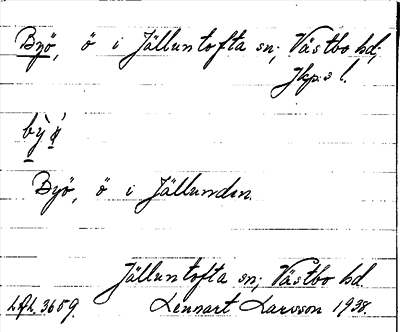 Byö, ö i Jälluntofta sn; Västbo hd;
Jkp:s l.
by̍ ö̍
Byö, ö i Jällunden.
Jälluntofta sn; Västbo hd.
Lfl. 3659. Lennart Larsson 1938.